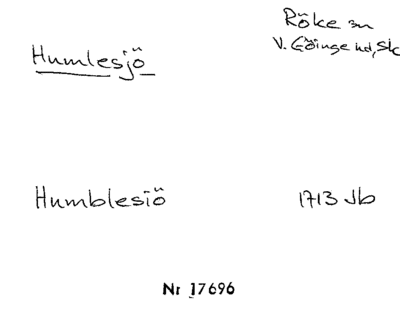 Humlesjö
Röke sn
V. Göinge hd, Sk
Humblesiö
1713 Jb
Nr 17696